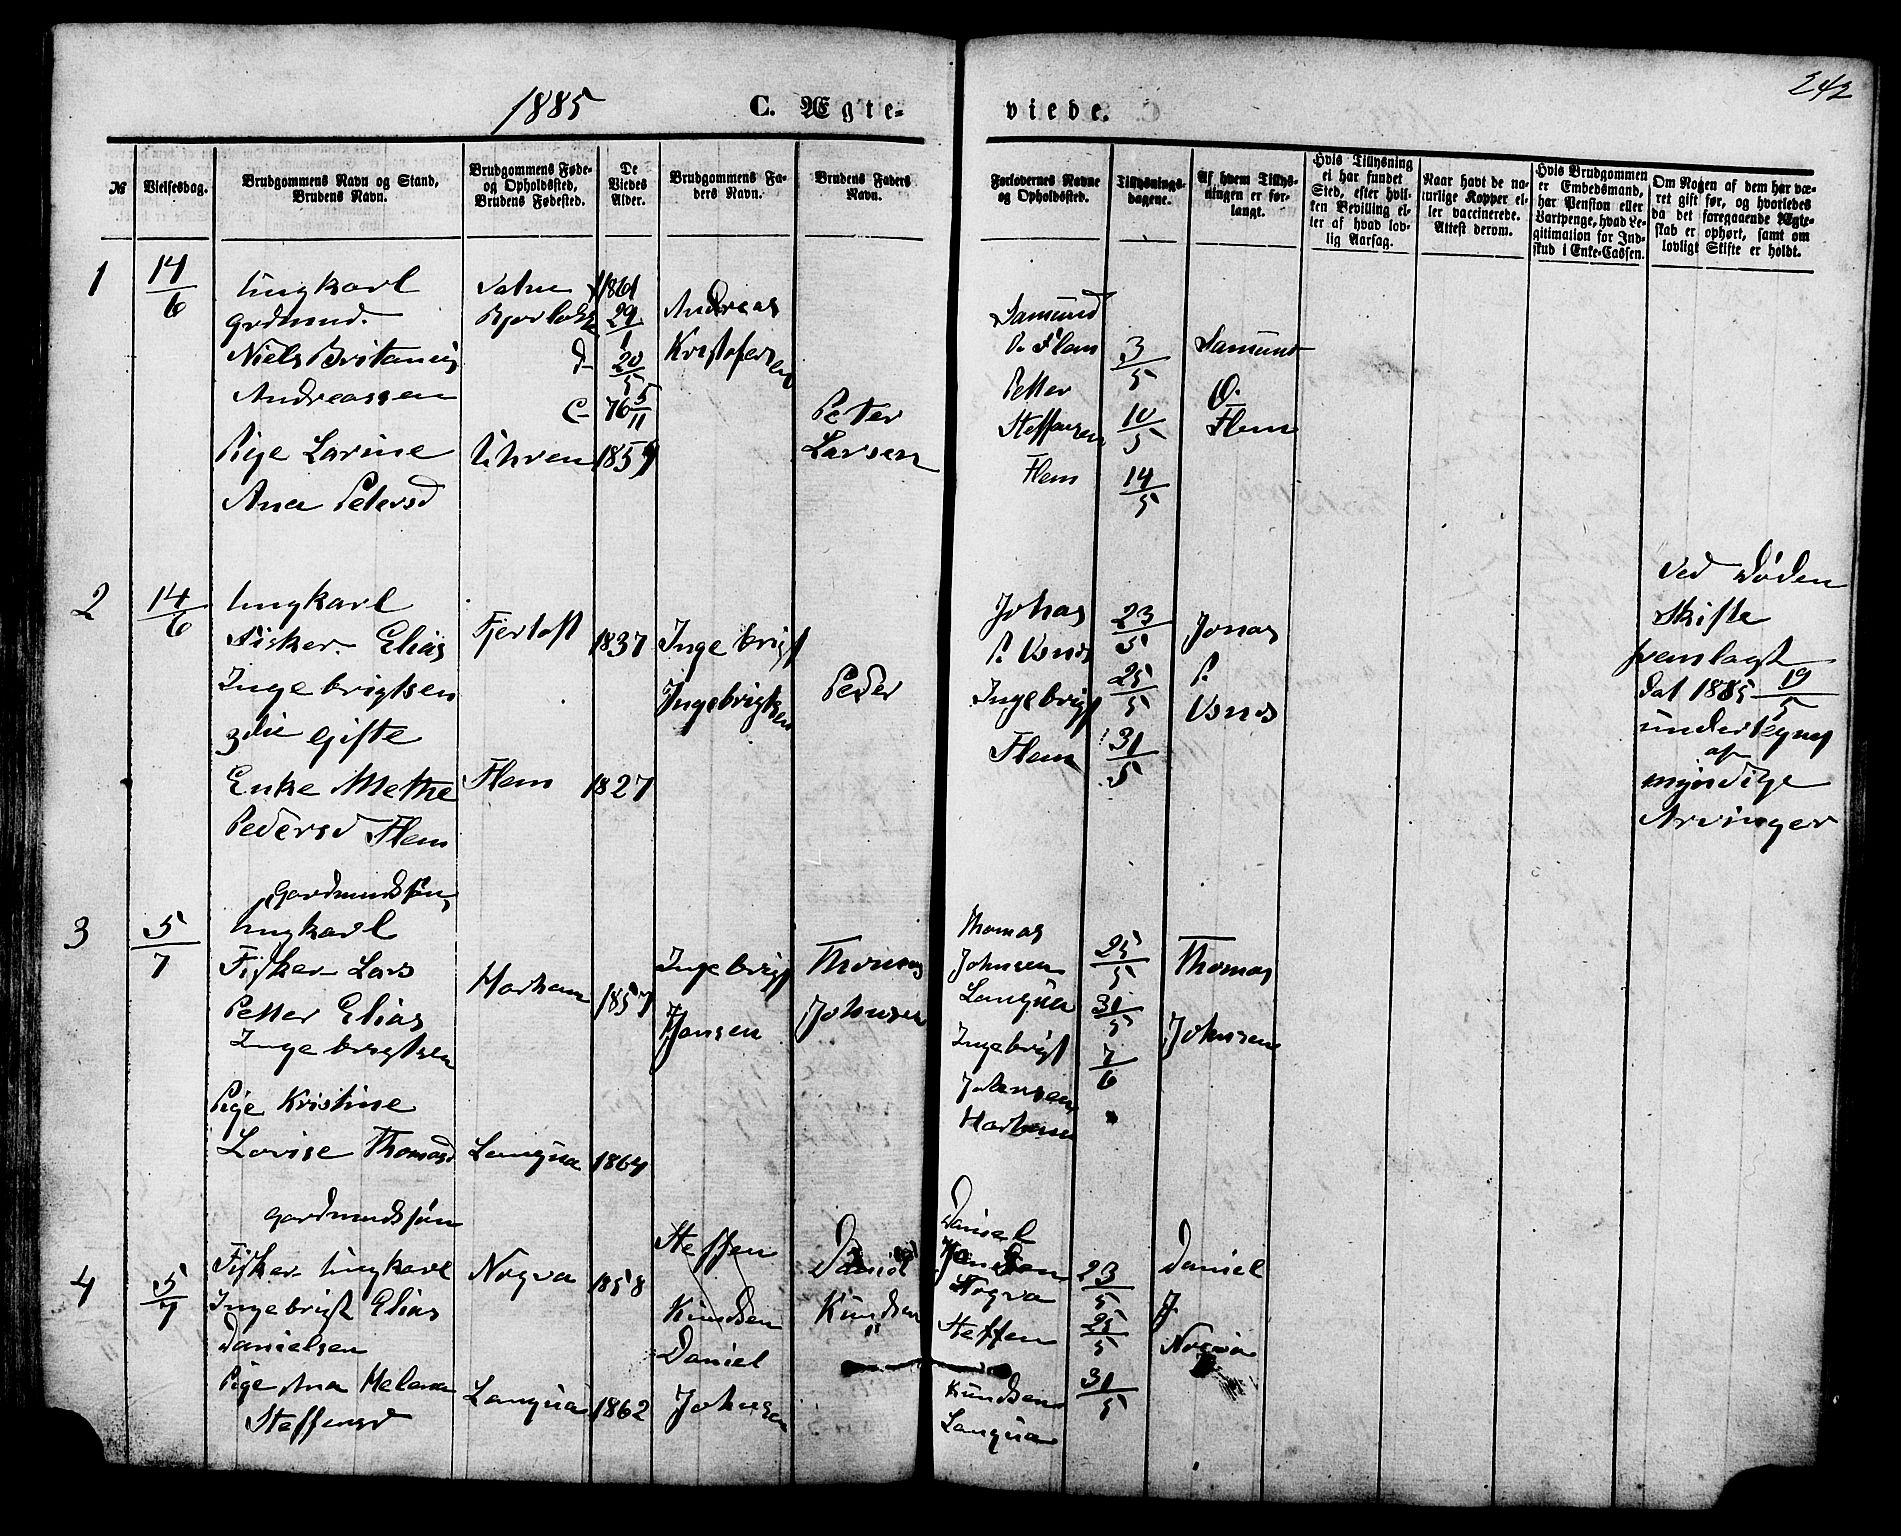 1885
C. Ægte-
viede.
242
№
Vielsesdag.
Brudgommens Navn og Stand,
Brudens Navn.
Brudgommens Føde-
og Opholdssted,
Brudens Fødested.
De
Viedes
Alder.
Brudgommens Fa-
ders Navn.
Brudens Faders
Navn.
Forlovernes Navne
og Opholdssted.
Tillysnings-
dagene.
Af hvem Tillys-
ningen er for-
langt.
Hvis Tillysning
ei har fundet
Sted, efter hvil-
ken Bevilling el-
ler af hvad lov-
lig Aarsag.
Naar havt de na-
turlige Kopper el-
ler vaccinerede.
Attest derom.
Hvis Brudgommen
er Embedsmand,
har Pension eller
Vartpenge, hvad Le-
gitimation for Ind-
skud i Enke-Cassen.
Om Nogen af dem har væ-
ret gift før, og hvorledes
da det foregaaende Ægte-
skab er ophørt, samt om
lovligt Skifte er holdt.
1
14/6
Ungkarl
Grdmnd.
Niels Britanius
Andreassen
Pige Larine
Ana Petersd
Vatne
Uhren
1861
29/1
D- 20/5
C- 76 5/11
1859
Andreas
Kristofersen
Peter
Larsen
Samund
P. Flem
Petter
Steffensen
Flem
3/5
10/5
14/5
Samund
O.
Flem
2
14/6
Ungkarl
Fisker Elias
Ingebrigtsen
3die Gifte
Enke Methe
Pedersd Flem
Fjertoft
Flem
1837
1827
Ingebrigt
Ingebrigtsen
Peder
Johas
P. Usnes
Ingebrigt
Flem
23/5
25/5
31/5
Jonas
P.
Usnes
Ved Døden
Skifte
fremlagt
dat 1885 19/5
undertegnet
af
myndige
Arvinger
3
5/7
Gardmandssøn,
Ungkarl
Fisker Lars
Petter Elias
Ingebrigtsen
Pige Kristine
Lovise Thomasd
Harham
Longva
1857
1864
Ingebrigt
Jansen
Thomas
Johnsen
Thomas
Johnsen
Longva
Ingebrigt
Johansen
Harham
25/5
31/5
7/6
Thomas
Johnsen
4
5/7
Gardmandssøn
Fisker Ungkarl
Ingebrigt Elias
Danielsen
Pige Ana Helena
Steffensd
Nogva
Longva
1858
1862
Steffen
Knudsen
Daniel
Johnsen
Daniel
Knudsen
Daniel
Nogva
Steffen
Knudsen
Longva
23/5
25/5
31/5
Daniel
J
Nogva